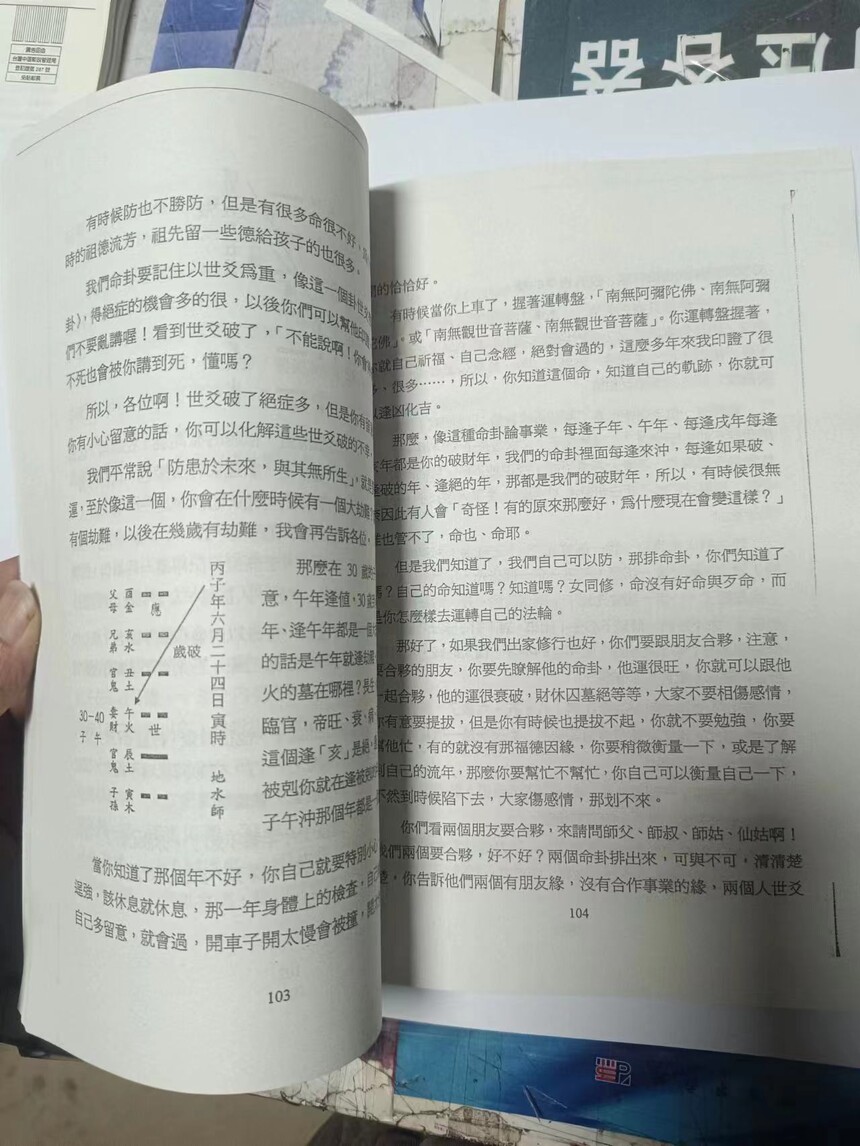 有時候防也不勝防，但是有很多命很不好，
時的祖德流芳，祖先留一些德給孩子的也很多。
我們命卦要記住以世爻為重，像這一個卦世
卦》，得絕症的機會多的很，以後你們可以幫他
們不要亂講喔！看到世爻破了，「不能說啊！你
不死也會被你講到死，懂嗎？
所以，各位啊！世爻破了絕症多，但是你有
你有小心留意的話，你可以化解這些世爻破的不
我們平常說「防患於未來，與其無所生」，就
逼，至於像這一個，你會在什麼時候有一個大劫
有個劫難，以後在幾歲有劫難，我會再告訴各位，
那麼在 30 歲
意，午年逢值，30
年、逢午年都是一個
的話是午年就逢
火的墓在哪裡？長生
臨官，帝旺、衰、病
這個逢「亥」是絕，
被剋你就在逢被剋
子午沖那個年都是一
丙子年六月二十四日寅時 地水師
歲破
父母 酉金 應
兄弟 亥水
官鬼 丑土
30－40 妻財 午火 世
子午
官鬼 辰土
子孫 寅木
當你知道了那個年不好，你自己就要特別小心
逞強，該休息就休息，那一年身體上的檢查，自己
自己多留意，就會過，開車子開太慢會被撞，
103
的恰恰好。
有時候當你上車了，握著運轉盤，「南無阿彌陀佛、南無阿彌
陀佛」。或「南無觀世音菩薩、南無觀世音菩薩」。你運轉盤握著，
你就自己祈福、自己念經，絕對會過的，這麼多年來我印證了很
多、很多……，所以，你知道這個命，知道自己的軌跡，你就可
以逢凶化吉。
那麼，像這種命卦論事業，每逢子年、午年、每逢戌年每逢
亥年都是你的破財年，我們的命卦裡面每逢來沖，每逢如果破、
逢破的年、逢絕的年，那都是我們的破財年，所以，有時候很無
因此有人會「奇怪！有的原來那麼好，為什麼現在會變這樣？」
也管不了，命也、命耶。
但是我們知道了，我們自己可以防，那排命卦，你們知道了
嗎？自己的命知道嗎？知道嗎？女同修，命沒有好命與歹命，而
是你怎麼樣去運轉自己的法輪。
那好了，如果我們出家修行也好，你們要跟朋友合夥，注意，
要合夥的朋友，你要先瞭解他的命卦，他運很旺，你就可以跟他
一起合夥，他的運很衰破，財休囚墓絕等等，大家不要相傷感情，
你有意要提拔，但是你有時候也提拔不起，你就不要勉強，你要
幫他忙，有的就沒有那福德因緣，你要稍微衡量一下，或是了解
到自己的流年，那麼你要幫忙不幫忙，你自己可以衡量自己一下，
不然到時候陷下去，大家傷感情，那划不來。
你們看兩個朋友要合夥，來請問師父、師叔、師姑、仙姑啊！
我們兩個要合夥，好不好？兩個命卦排出來，可與不可，清清楚
楚，你告訴他們兩個有朋友緣，沒有合作事業的緣，兩個人世爻
104